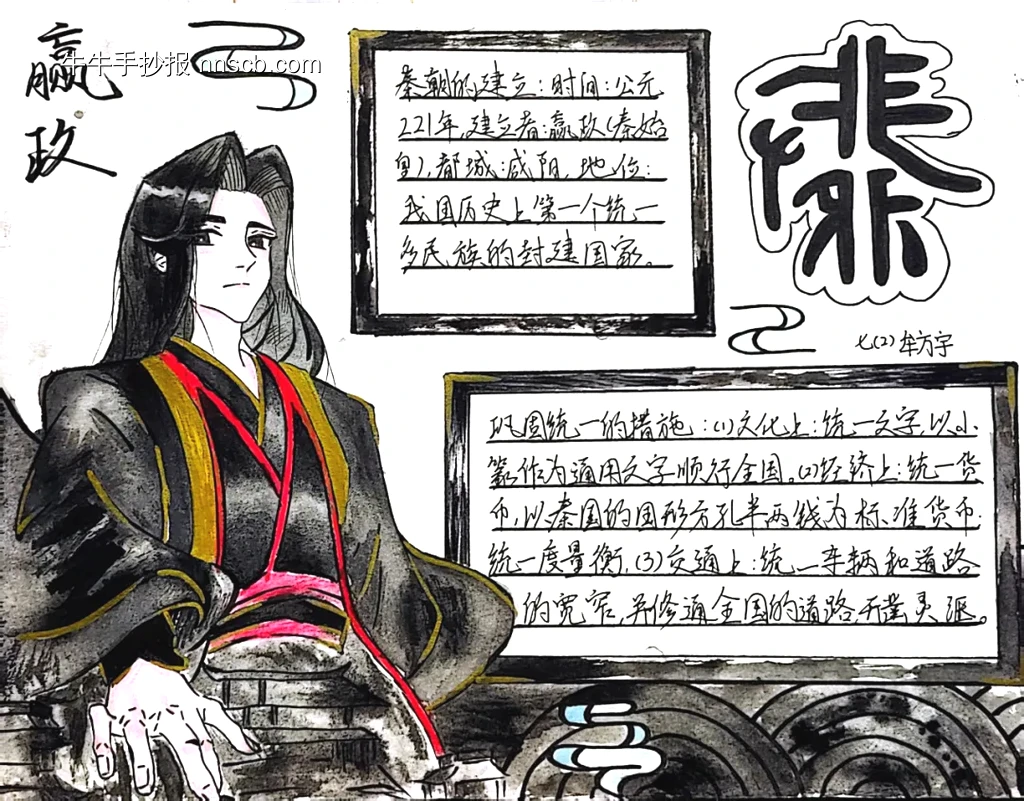 嬴
政
牛牛手抄报 nnscb.com
秦朝的建立:时间:公元
221年,建立者:嬴政(秦始
皇),都城:咸阳,地位:
我国历史上第一个统一
多民族的封建国家。
秦
七(2) 牟方宇
巩固统一的措施:(1)文化上:统一文字,以小
篆作为通用文字颁行全国。(2)经济上:统一货
币,以秦国的圆形方孔半两钱为标准货币.
统一度量衡,(3)交通上:统一车辆和道路
的宽窄,并修通全国的道路,开凿灵渠。